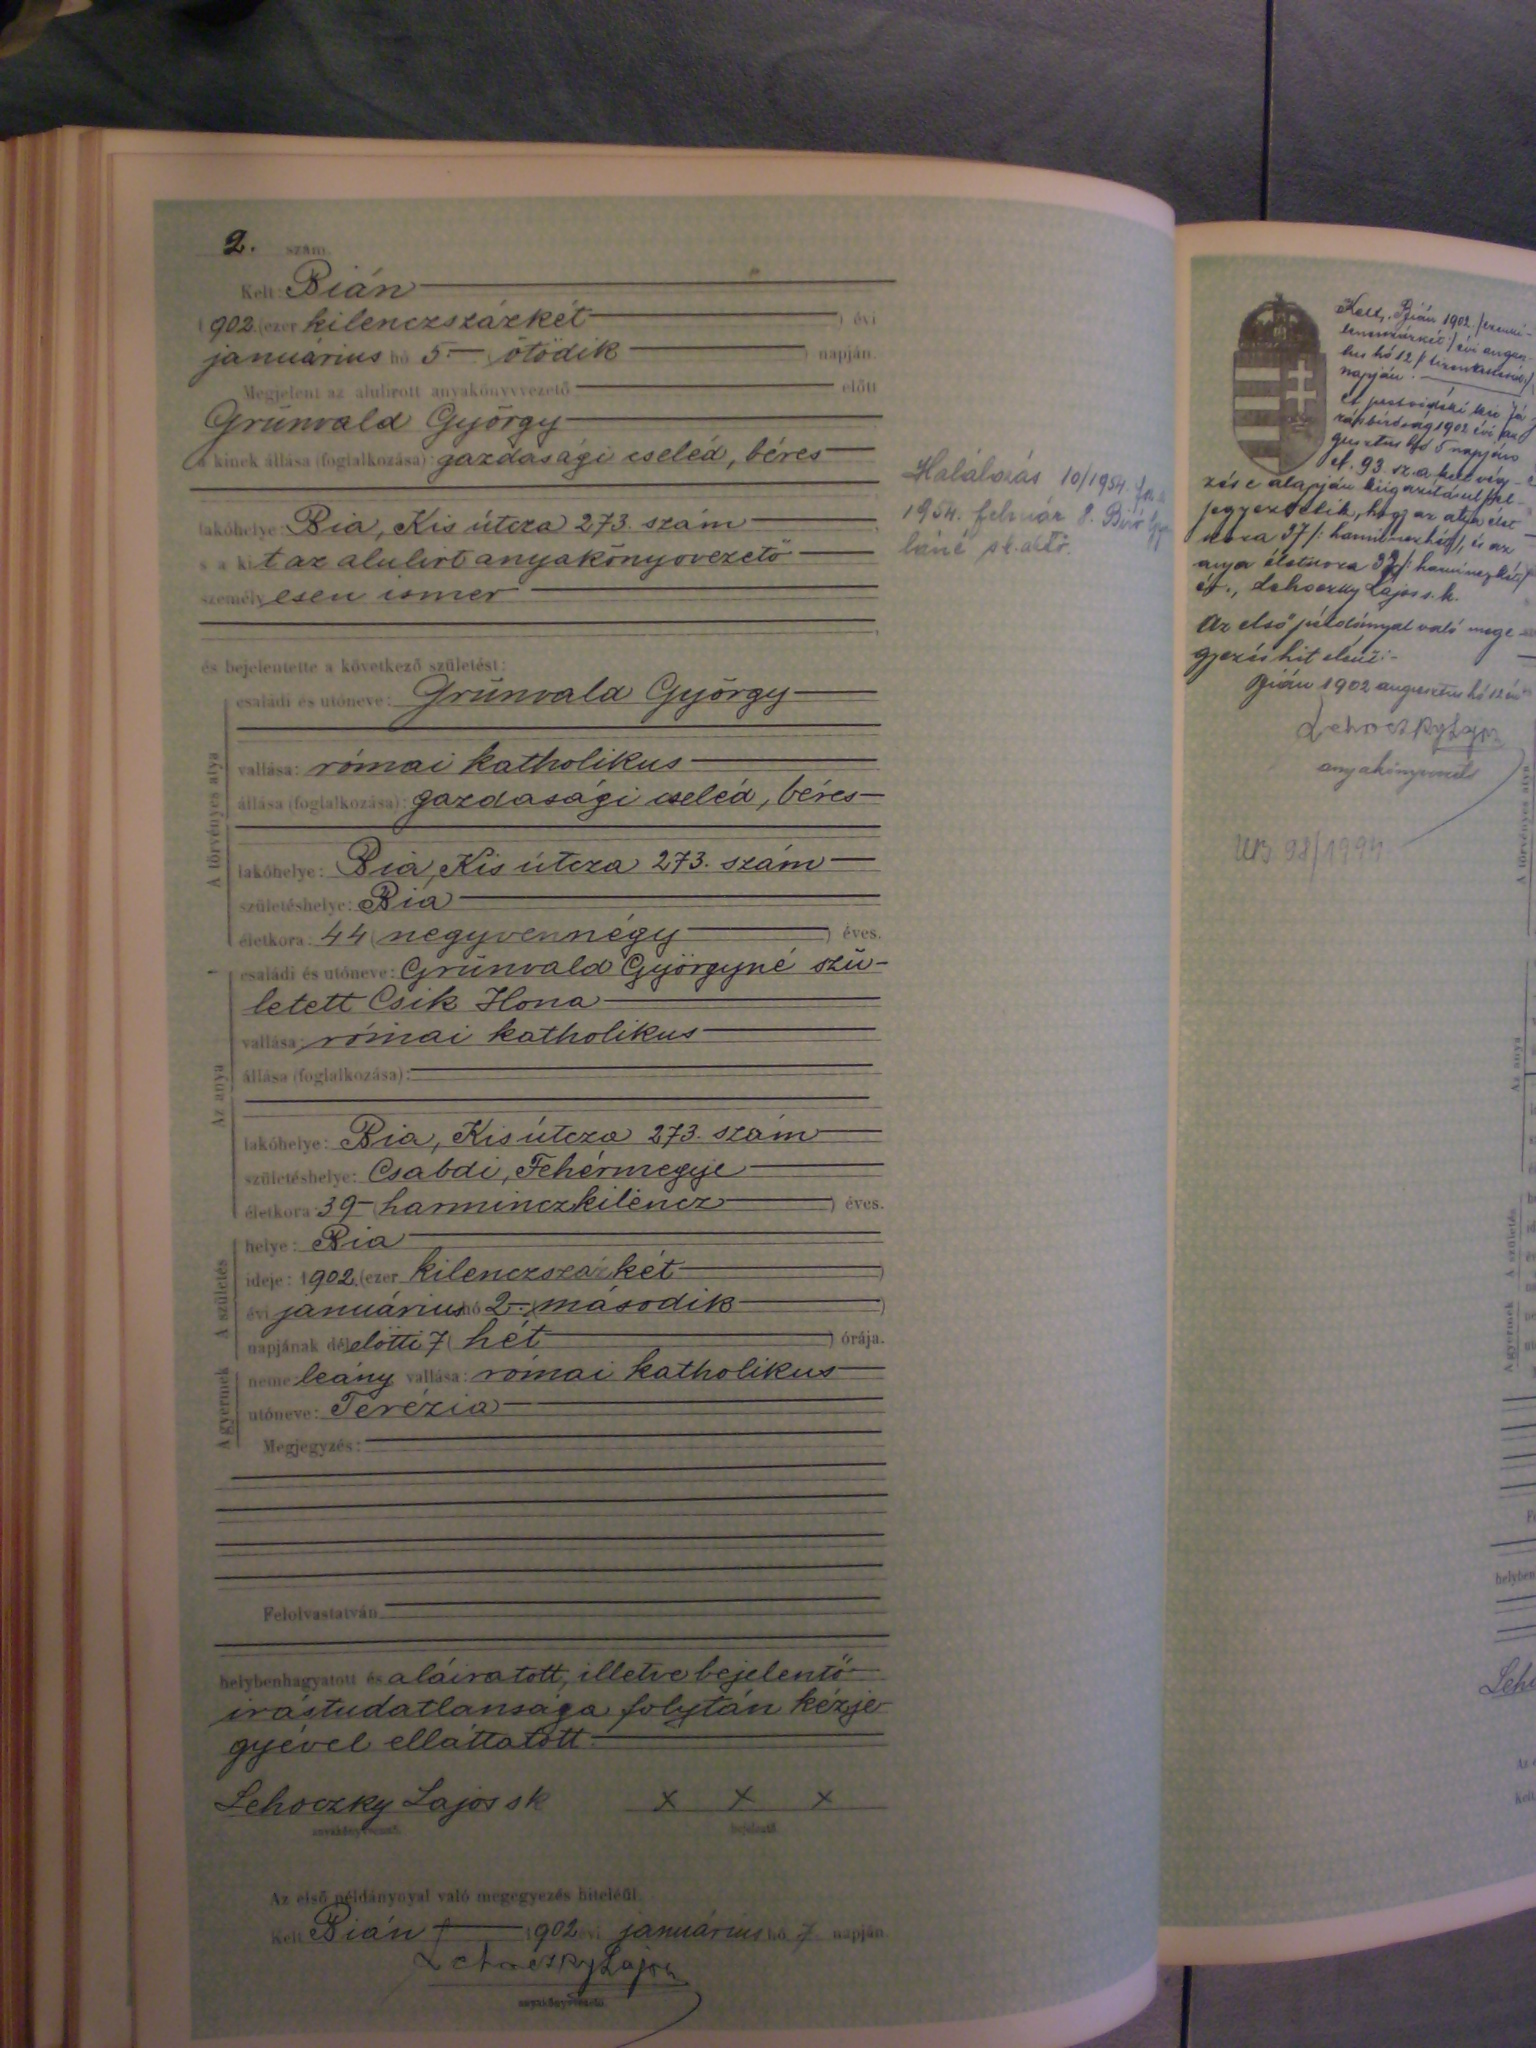 2. szám.
Kelt: Bián
1902. (ezer kilenczszázkét) évi
januárius hó 5 (ötödik) napján.
Megjelent az alulirott anyakönyvvezető előtt
Grünvald György
a kinek állása (foglalkozása): gazdasági cseléd, béres
lakóhelye: Bia, Kis útcza 273. szám
s a kit az alulirt anyakönyvvezető
személyesen ismer
és bejelentette a következő születést:
A törvényes atya
családi és utóneve: Grünvald György
vallása: római katholikus
állása (foglalkozása): gazdasági cseléd, béres
lakóhelye: Bia, Kis útcza 273. szám
születéshelye: Bia
életkora: 44 (negyvennégy) éves.
Az anya
családi és utóneve: Grünvald Györgyné szü-
letett Csik Ilona
vallása: római katholikus
állása (foglalkozása):
lakóhelye: Bia, Kis útcza 273. szám
születéshelye: Csabdi, Fehérmegye
életkora: 39 (harminczkilencz) éves.
A születés
helye: Bia
ideje: 1902. (ezer kilenczszázkét)
évi januárius hó 2. (második)
napjának délelőtti 7 (hét) órája.
A gyermek
neme leány vallása: római katholikus
utóneve: Terézia
Megjegyzés:
Felolvastatván,
helybenhagyatott és aláiratott, illetve bejelentő
irástudatlansága folytán kézje
gyével elláttatott.
Lehoczky Lajos sk x x x
anyakönyvvezető. bejelentő.
Az első példánynyal való megegyezés hiteléül.
Kelt Bián 1902 évi januárius hó 7 napján
Lehoczky Lajos
anyakönyvvezető.
Halálozás 10/1954.
1954. február 8. Biró
Kelt, Bián 1902. /ezerki-
lenczszázkét/ évi augusz-
tus hó 12 /tizenkettedik/
napján.
A pestvidéki kir. já-
rásbíróság 1902 évi au
gusztus hó 5 napján
93. sz. a. kelt vég-
zése alapján kiigazításul fel-
jegyeztetik, hogy az atya élet
kora 37 /: harminczhét/, és az
anya életkora 32 /: harminczkét/
év., Lehoczky Lajos s. k.
Az első példánynyal való mege
gyezés hiteléül:-
Bián 1902 augusztus hó 12 én
Lehoczky Lajos
anyakönyvvezető
98/1994
A törvényes atya
Az anya
A születés
A gyermek
helyben